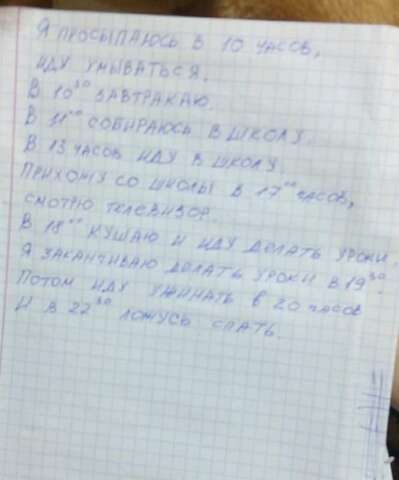 Я ПРОСЫПАЮСЬ В 10 ЧАСОВ,
ИДУ УМЫВАТЬСЯ.
В 10³⁰ ЗАВТРАКАЮ.
В 11⁰⁰ СОБИРАЮСЬ В ШКОЛУ.
В 13 ЧАСОВ ИДУ В ШКОЛУ.
ПРИХОЖУ СО ШКОЛЫ В 17⁰⁰ ЧАСОВ,
СМОТРЮ ТЕЛЕВИЗОР.
В 18⁰⁰ КУШАЮ И ИДУ ДЕЛАТЬ УРОКИ.
Я ЗАКАНЧИВАЮ ДЕЛАТЬ УРОКИ В 19³⁰.
ПОТОМ ИДУ УЖИНАТЬ В 20 ЧАСОВ
И В 22³⁰ ЛОЖУСЬ СПАТЬ.